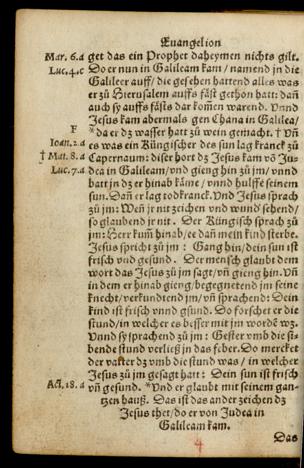 Euangelion
Mar. 6.a get das ein Prophet daheymen nichts gilt.
Luc. 4.c Do er nun in Galileam kam / namend jn die
Galileer auff / die gesehen hattend alles was
er zů Hierusalem auffs fäst gethon hatt: dañ
auch sy auffs fästs dar komen warend. Vnnd
Jesus kam abermals gen Chana in Galilea/
F *da er dz wasser hatt zů wein gemacht. † Vñ
Ioan. 2.a es was ein Küngischer des sun lag kranck zů
† Mat. 8.a Capernaum: diser hort dz Jesus kam võ Ju-
Luc. 7.a dea in Galileam / vnd gieng hin zů jm / vnnd
batt jn dz er hinab käme / vnnd hulffe seinem
sun. Dañ er lag todkranck. Vnd Jesus sprach
zů jm: Weñ jr nit zeichen vnd wund sehend / so
glaubend jr nit. Der Küngisch sprach zů
jm: Herr kum̃ hinab / ee dañ mein kind sterbe.
Jesus spricht zů jm: Gang hin / dein sun ist
frisch vnd gesund. Der mensch glaubt dem
wort das Jesus zů jm sagt / vñ gieng hin. Vñ
in dem er hinab gieng / begegnetend jm seine
knecht / verkundtend jm / vñ sprachend: Dein
kind ist frisch vnnd gsund. Do forschet er die
stund / in welcher es besser mit jm wordẽ wz.
Vnnd sy sprachend zů jm: Gester vmb die si-
bende stund verließ jn das feber. Do mercket
der vatter dz vmb die stund was / in welcher
Jesus zů jm gesagt hatt: Dein sun ist frisch
Act. 18.a vñ gesund. *Vnd er glaubt mit seinem gan-
tzen hauß. Das ist das ander zeichen dz
Jesus thet / do er von Judea in
Galileam kam.
4
Das